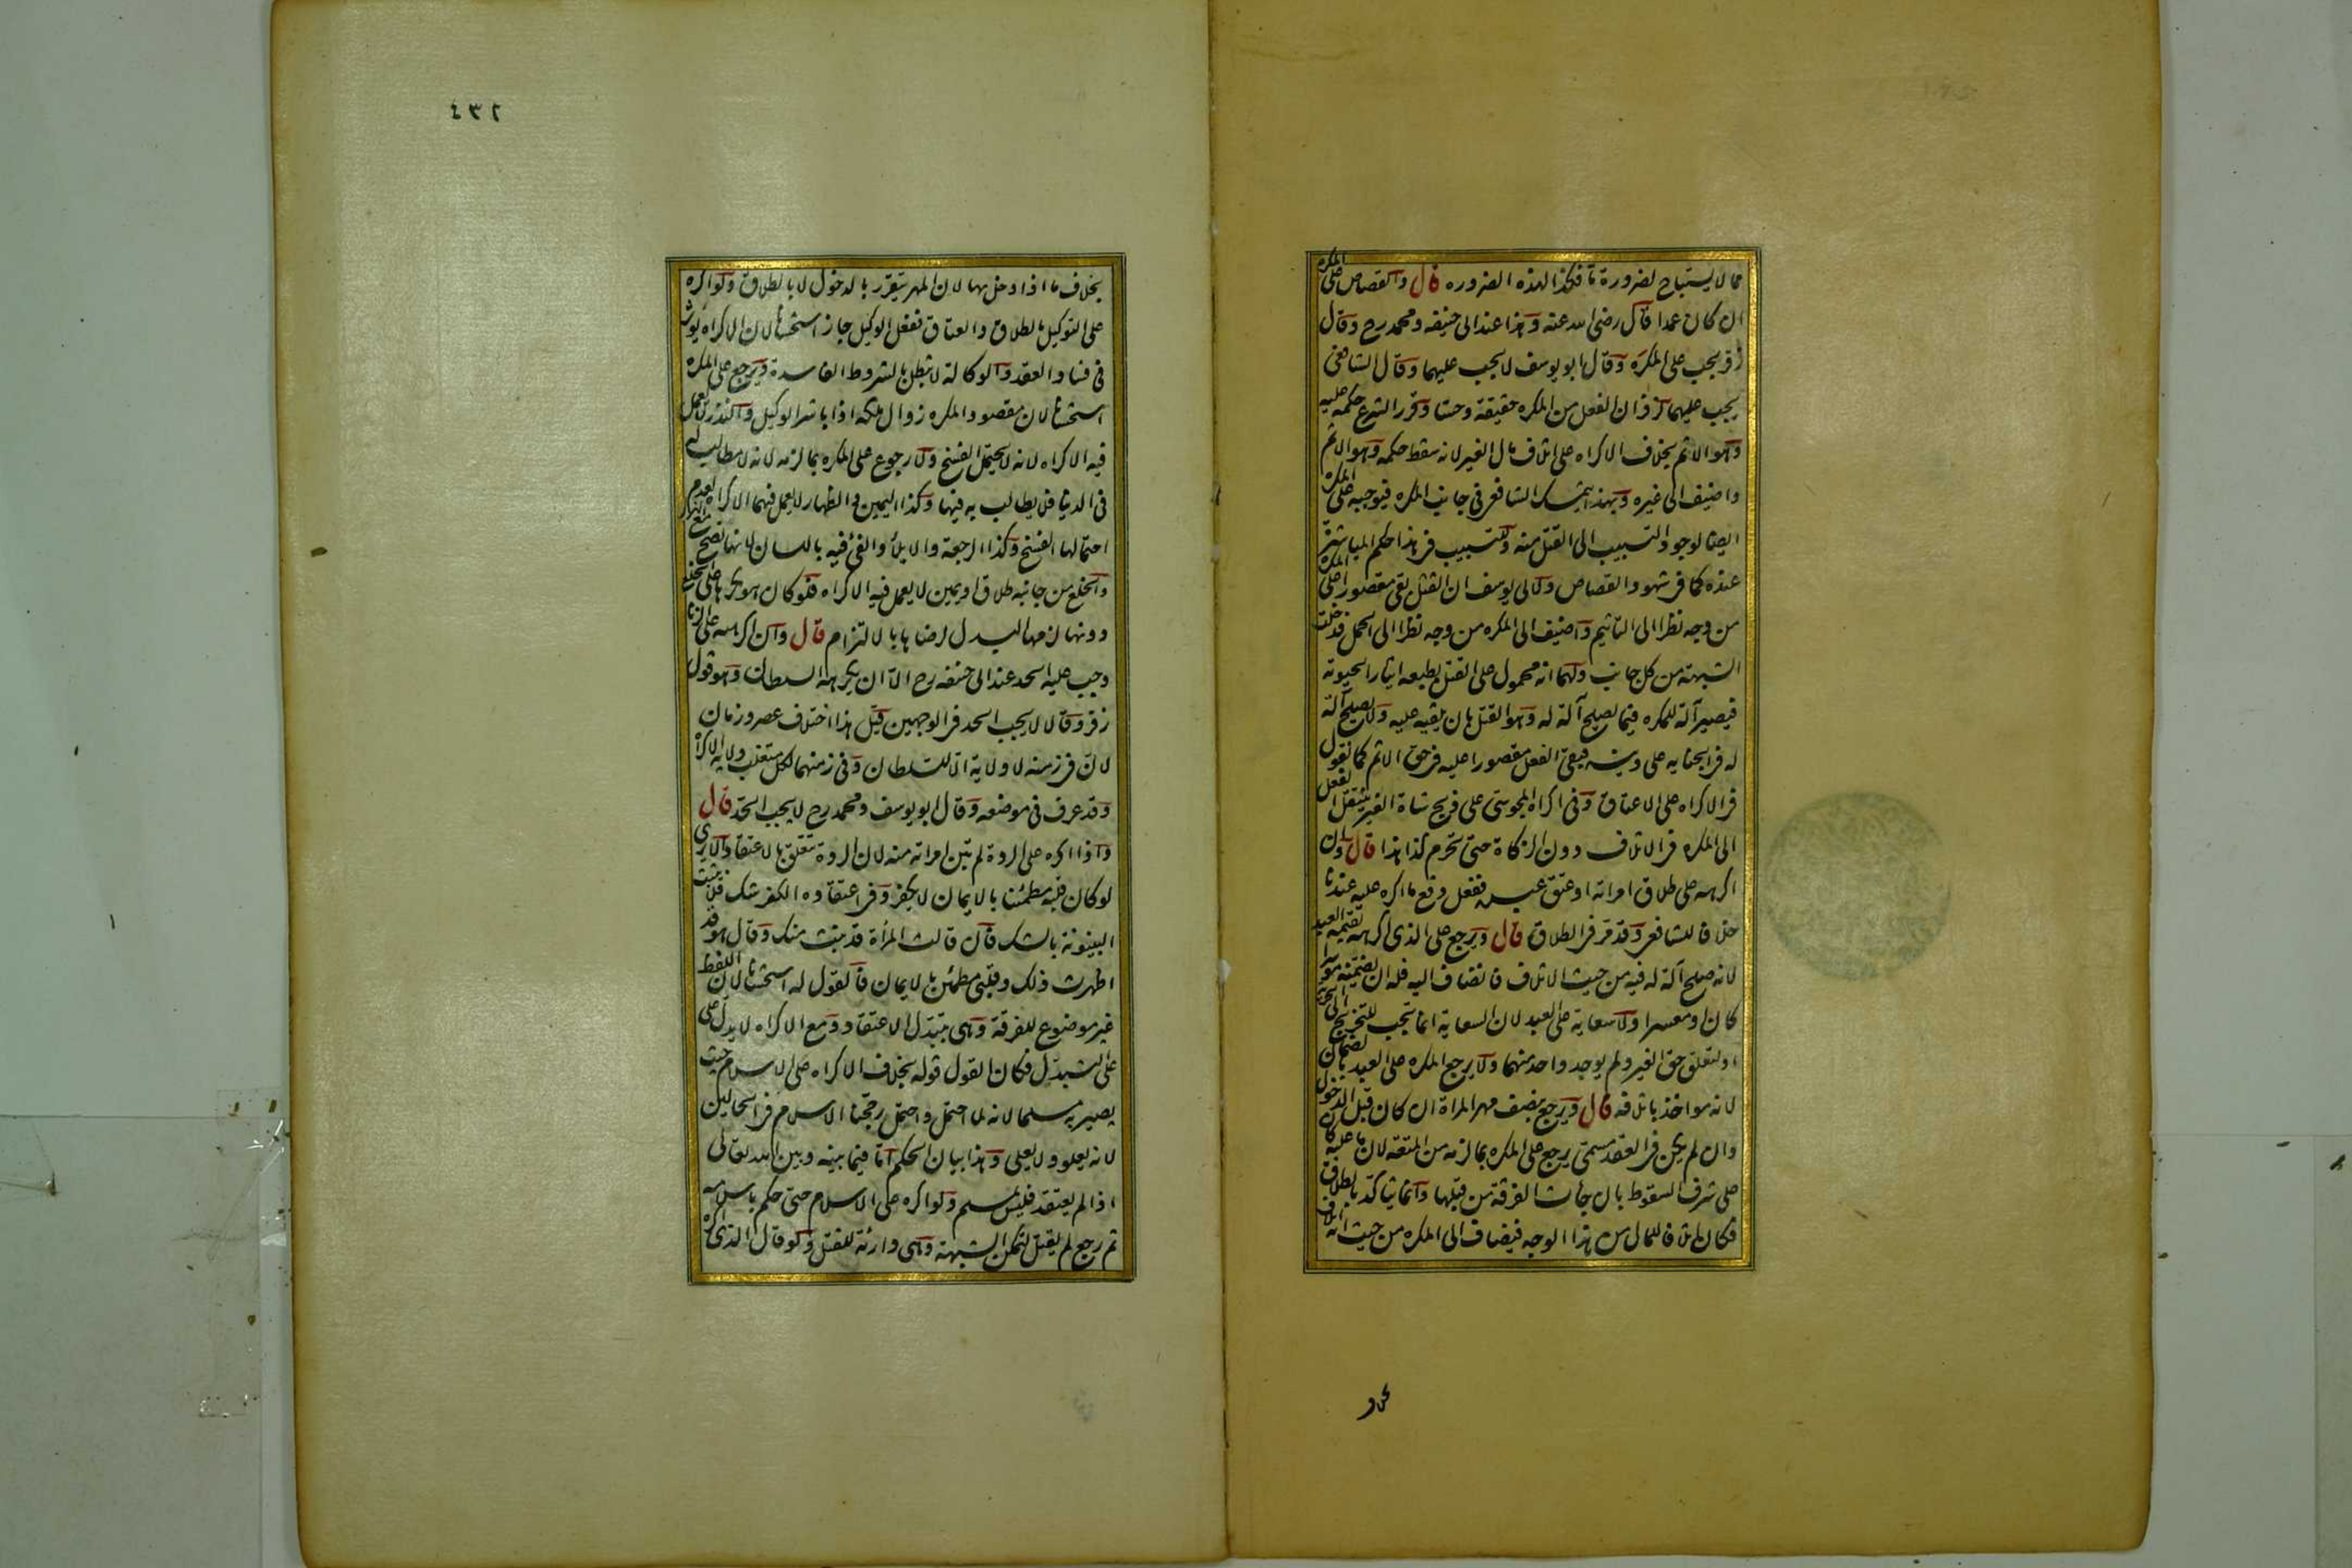 مما لا يستباح لضرورة ما فكذا لهذه الضرورة قال والقصاص على المكره
ان كان عمدا قال رضى الله عنه وهذا عند ابى حنيفه ومحمد رح وقال
زفر يجب على المكره وقال ابو يوسف لا يجب عليهما وقال الشافعى
يجب عليهما لزفر ان الفعل من المكره حقيقة وحسا وقرر الشرع حكمه عليه
وهو الاثم بخلاف الاكراه على اتلاف مال الغير لانه سقط حكمه وهو الاثم
واضيف الى غيره وبهذا يتمسك الشافعى فى جانب المكره فيوجبه على المكره
ايضا لوجود التسبيب الى القتل منه وللتسبيب فى هذا حكم المباشرة
عنده كما فى شهود القصاص ولابى يوسف ان القتل بقى مقصورا على المكره
من وجه نظرا الى التاثيم واضيف الى المكره من وجه نظرا الى الحمل فدخلت
الشبهة من كل جانب ولهما انه محمول على القتل بطبعه ايثارا لحيوته
فيصير آلة للمكره فيما يصلح آلة له وهو القتل بان يلقيه عليه ولا يصلح آلة
له فى الجناية على دينه فيبقى الفعل مقصورا عليه فى حق الاثم كما نقول
فى الاكراه على الاعتاق وفى اكراه المجوسى على ذبح شاة الغير ينتقل الفعل
الى المكره فى الاتلاف دون الزكاة حتى تحرم كذا هذا قال وان
اكرهه على طلاق امراته او عتق عبده ففعل وقع ما اكره عليه عندنا
خلافا للشافعى وقد مر فى الطلاق قال ويرجع على الذى اكرهه بقيمة العبد
لانه صلح آلة له فيه من حيث الاتلاف فانضاف اليه فله ان يضمنه موسرا
كان او معسرا ولا سعاية على العبد لان السعاية انما تجب للتخريج الى الحرية
او لتعلق حق الغير ولم يوجد واحد منهما ولا يرجع المكره على العبد بالضمان
لانه مواخذ باتلافه قال ويرجع بنصف مهر المراة ان كان قبل الدخول
وان لم يكن فى العقد مسمى يرجع على المكره بما لزمه من المتعة لان ما عليه كان
على شرف السقوط بان جاءت الفرقة من قبلها وانما يتاكد بالطلاق
فكان اتلافا للمال من هذا الوجه فيضاف الى المكره من حيث انه اتلاف
٤٣٢
بخلاف ما اذا دخل بها لان المهر يتقرر بالدخول لا بالطلاق ولو اكره
على التوكيل بالطلاق والعتاق ففعل الوكيل جاز استحسانا لان الاكراه يؤثر
فى فساد العقد والوكالة لا تبطل بالشروط الفاسدة ويرجع على المكره
استحسانا لان مقصود المكره زوال ملكه اذا باشر الوكيل والنذر لا يعمل
فيه الاكراه لانه لا يحتمل الفسخ ولا رجوع على المكره بما لزمه لانه لا مطالب له
فى الدنيا فلا يطالب به فيها وكذا اليمين والظهار لا يعمل فيهما الاكراه لعدم
احتمالها الفسخ وكذا الرجعة والايلاء والفئ فيه باللسان لانها تصح مع الهزل
والخلع من جانبه طلاق او يمين لا يعمل فيه الاكراه فلو كان هو مكرها على الخلع
دونها لزمها البدل لرضاها بالالتزام قال وان اكرهه على الزنا
وجب عليه الحد عند ابى حنيفه رح الا ان يكرهه السلطان وهو قول
زفر وقالا لا يجب الحد فى الوجهين قيل هذا اختلاف عصر وزمان
لان فى زمنه لا ولاية الا للسلطان وفى زمنهما لكل متغلب ولاية الاكراه
وقد عرف فى موضعه وقال ابو يوسف ومحمد رح لا يجب الحد قال
واذا اكره على الردة لم تبن امراته منه لان الردة تتعلق بالاعتقاد الا يرى
لو كان قلبه مطمئنا بالايمان لا يكفر وفى اعتقاده الكفر شك فلا تثبت
البينونة بالشك فان قالت المرأة قد بنت منك وقال هو قد
اظهرت ذلك وقلبى مطمئن بالايمان فالقول له استحسانا لان اللفظ
غير موضوع للفرقة وهى بتبدل الاعتقاد ومع الاكراه لا يدل على
على التبدل فكان القول قوله بخلاف الاكراه على الاسلام حيث
يصير به مسلما لانه لما احتمل واحتمل رجحنا الاسلام فى الحالين
لانه يعلو ولا يعلى وهذا بيان الحكم اما فيما بينه وبين الله تعالى
اذا لم يعتقد فليس بمسلم ولو اكره على الاسلام حتى حكم باسلامه
ثم رجع لم يقتل لتمكن الشبهة وهى دارئة للقتل ولو قال الذى اكره